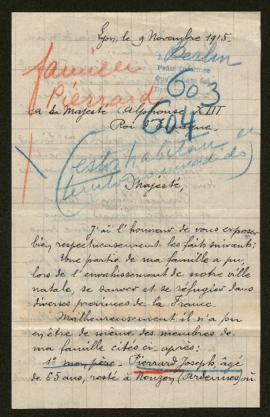 Lyon, le 9 Novembre 1915.
Berlin
famille
Pierrard
603
604
à Sa Majesté Alphonse XIII
Roi d'Espagne.
(esta habitaba en
territorio invadido)
Majesté,
J'ai l'honneur de vous exposer
bien respectueusement les faits suivants:
Une partie de ma famille a pu,
lors de l'envahissement de notre ville
natale, se sauver et se réfugier dans
diverses provinces de la France.
Malheureusement il n'a pu
en être de même des membres de
ma famille cités ci-après:
1° mon père. Pierrard Joseph, âgé
de 65 ans, resté à Nouzon (Ardennes) où